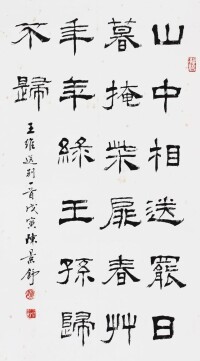 山中相送罷日
暮掩柴扉春艸
年年綠王孫歸
不歸
王維送別一首戊寅陳景舒